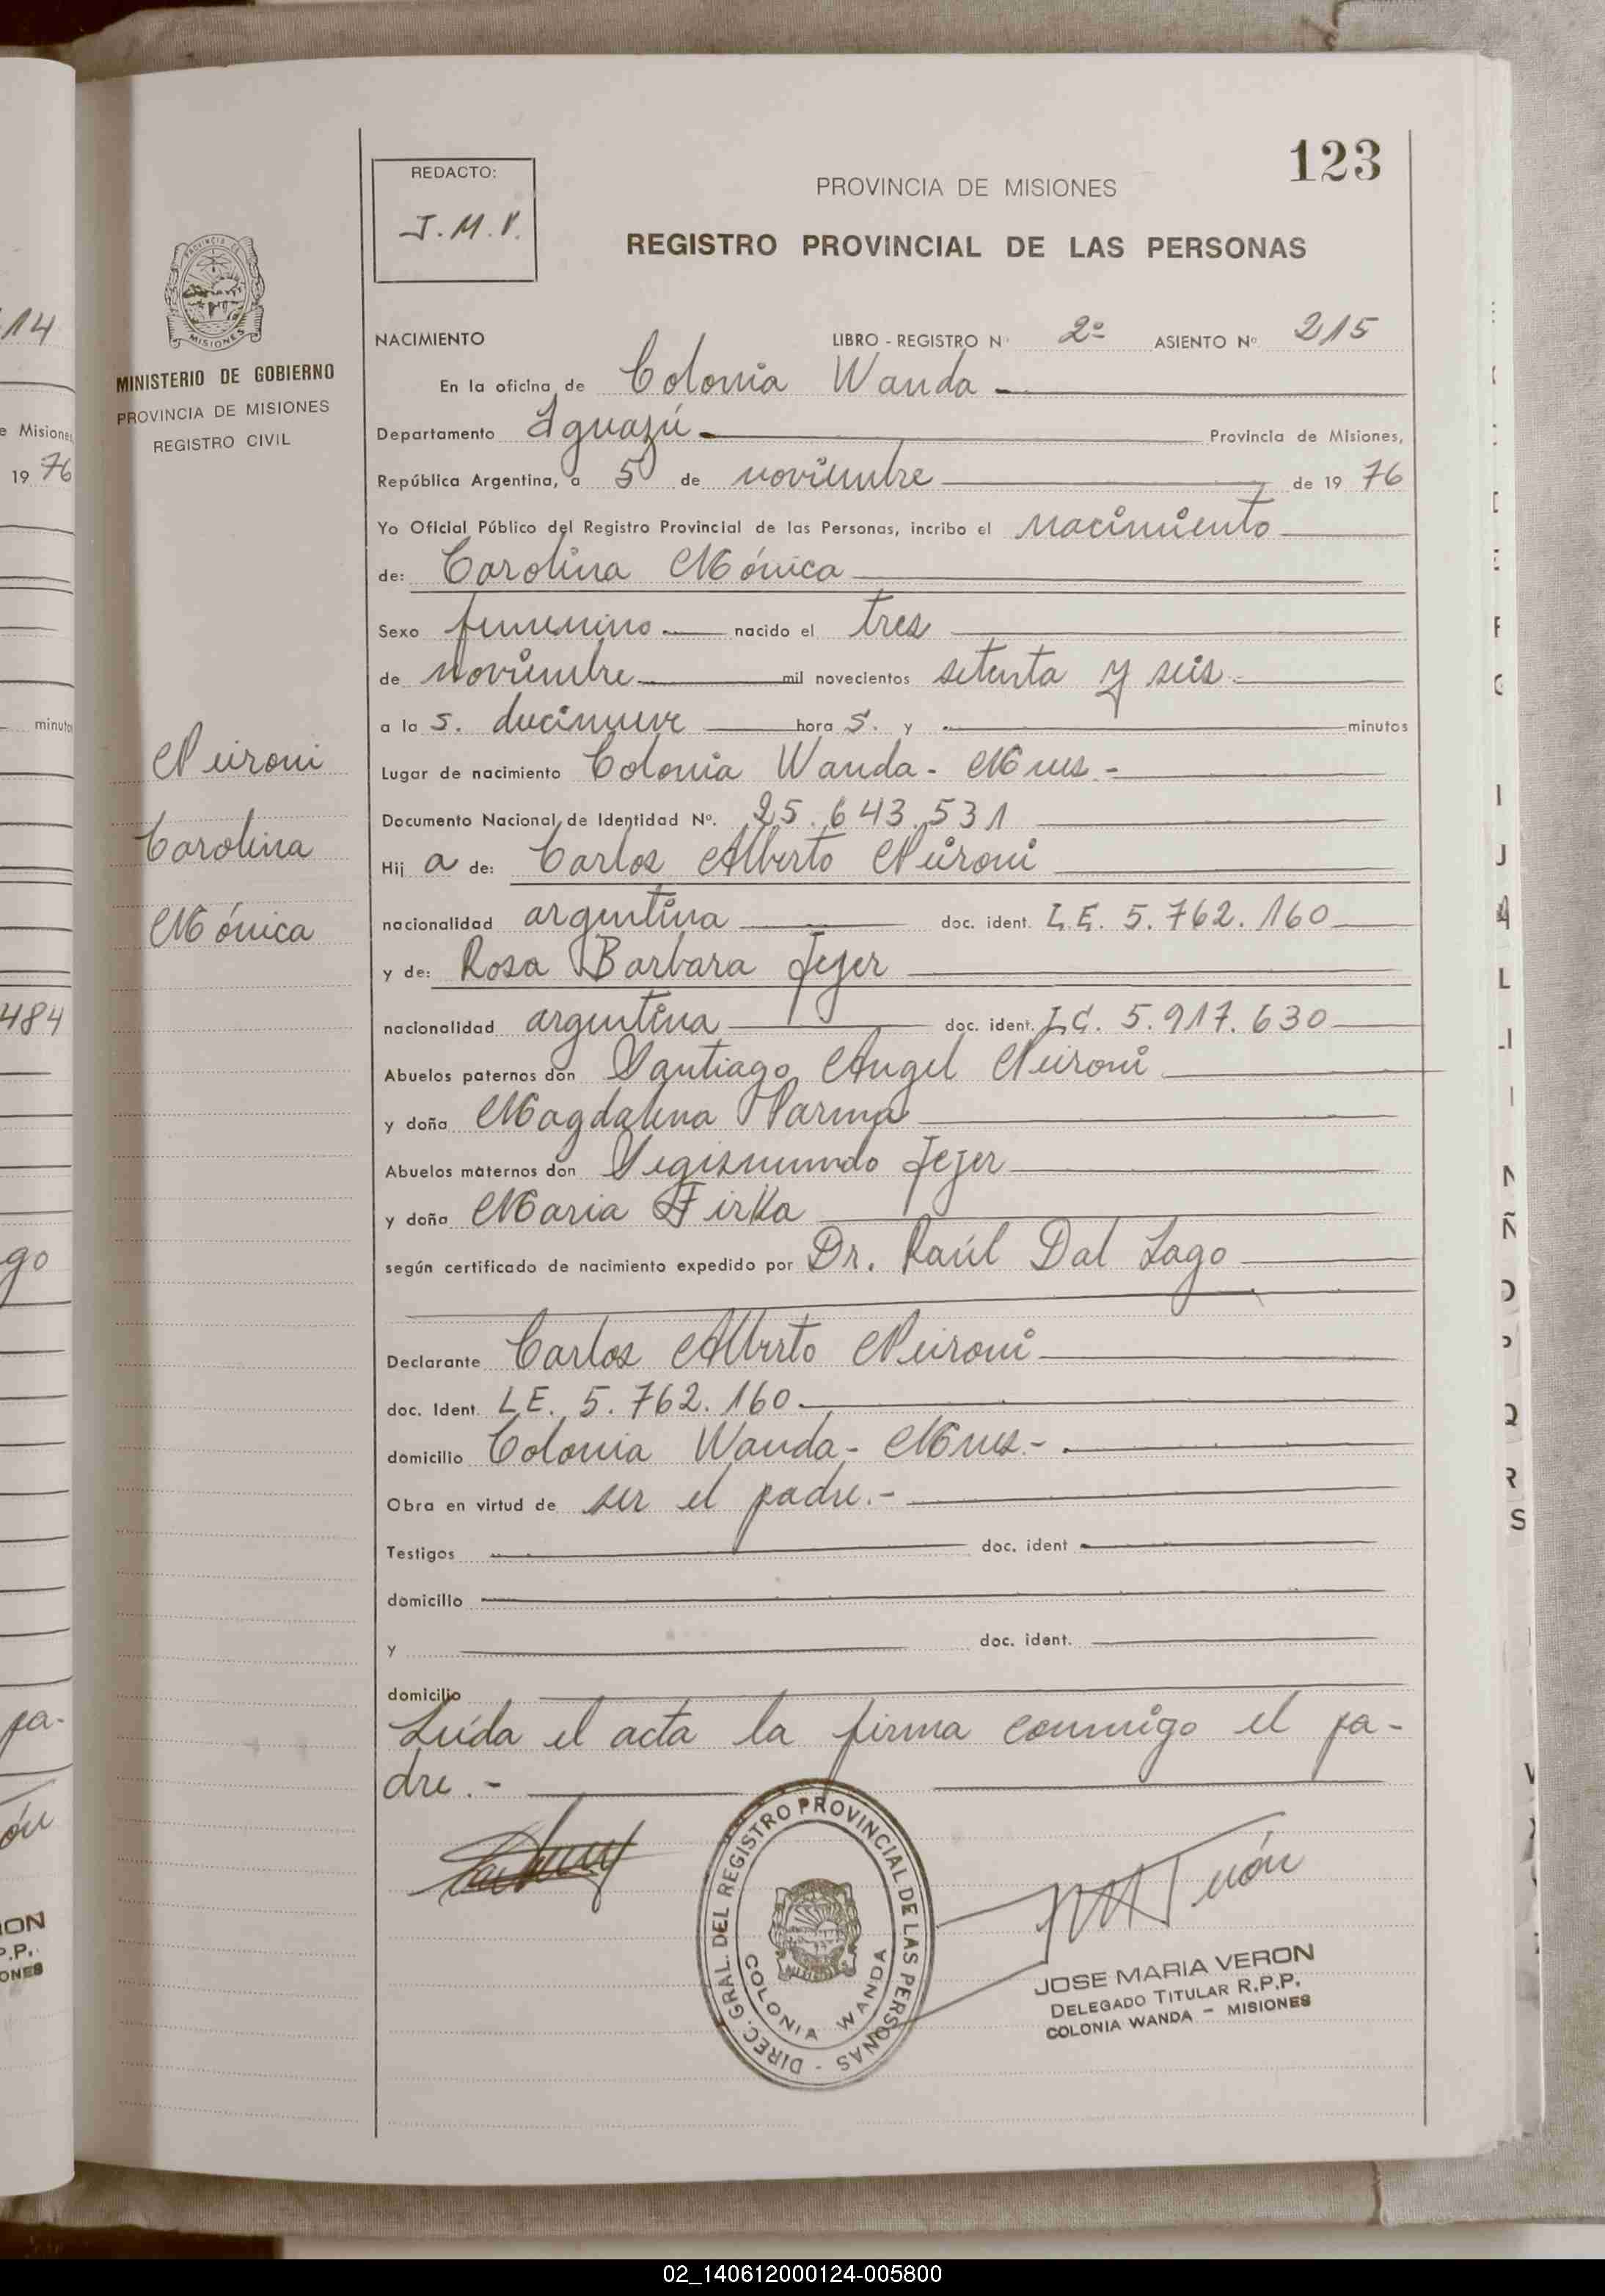 123
REDACTO:
J.M.V.
PROVINCIA DE MISIONES
REGISTRO PROVINCIAL DE LAS PERSONAS
PROVINCIA DE MISIONES
MINISTERIO DE GOBIERNO
PROVINCIA DE MISIONES
REGISTRO CIVIL
NACIMIENTO LIBRO - REGISTRO Nº 2º ASIENTO Nº 215
En la oficina de Colonia Wanda -
Departamento Iguazú - Provincia de Misiones,
República Argentina, a 5 de noviembre de 19 76
Yo Oficial Público del Registro Provincial de las Personas, incribo el Nacimiento
de: Carolina Mónica
Sexo femenino nacido el tres
de noviembre mil novecientos setenta y seis
a la s. diecinueve hora s. y minutos
Lugar de nacimiento Colonia Wanda - Mnes -
Documento Nacional de Identidad Nº. 25.643.531
Hij a de: Carlos Alberto Neironi
nacionalidad argentina doc. ident. L.E. 5.762.160
y de: Rosa Barbara Fejer
nacionalidad argentina doc. ident. L.C. 5.917.630
Abuelos paternos don Santiago Angel Neironi
y doña Magdalena Parma
Abuelos maternos don Segismundo Fejer
y doña Maria Firka
según certificado de nacimiento expedido por Dr. Raúl Dal Lago
Declarante Carlos Alberto Neironi
doc. Ident. L.E. 5.762.160
domicilio Colonia Wanda - Mnes. -
Obra en virtud de ser el padre. -
Testigos doc. ident
domicilio
y doc. ident.
domicilio
Leída el acta la firma conmigo el pa-
dre. -
Neironi
Carolina
Mónica
DIREC. GRAL. DEL REGISTRO PROVINCIAL DE LAS PERSONAS -
COLONIA WANDA
JOSE MARIA VERON
DELEGADO TITULAR R.P.P.
COLONIA WANDA - MISIONES
14
e Misiones,
19 76
minutos
484
go
pa-
ón
ON
P.P.
ONES
02_140612000124-005800